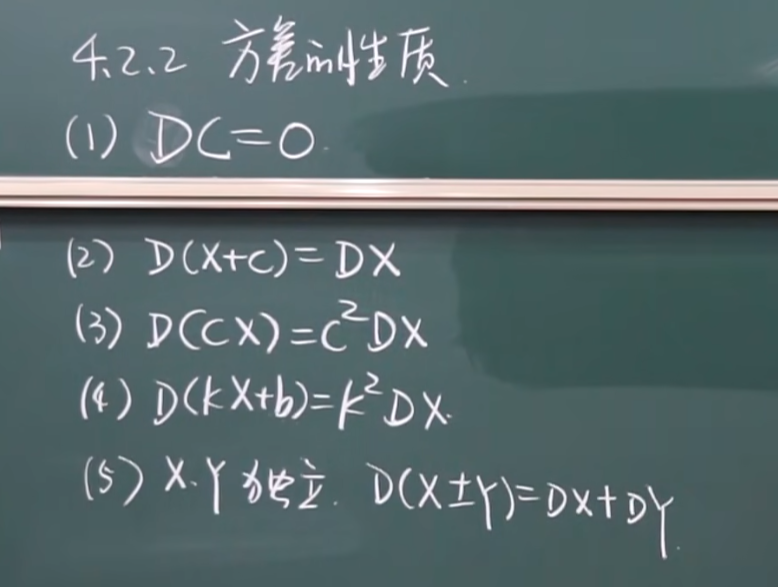 4.2.2 方差的性质.
(1) DC=0.
(2) D(X+C)=DX
(3) D(CX)=C²DX
(4) D(kX+b)=k²DX.
(5) X.Y独立. D(X±Y)=DX+DY.